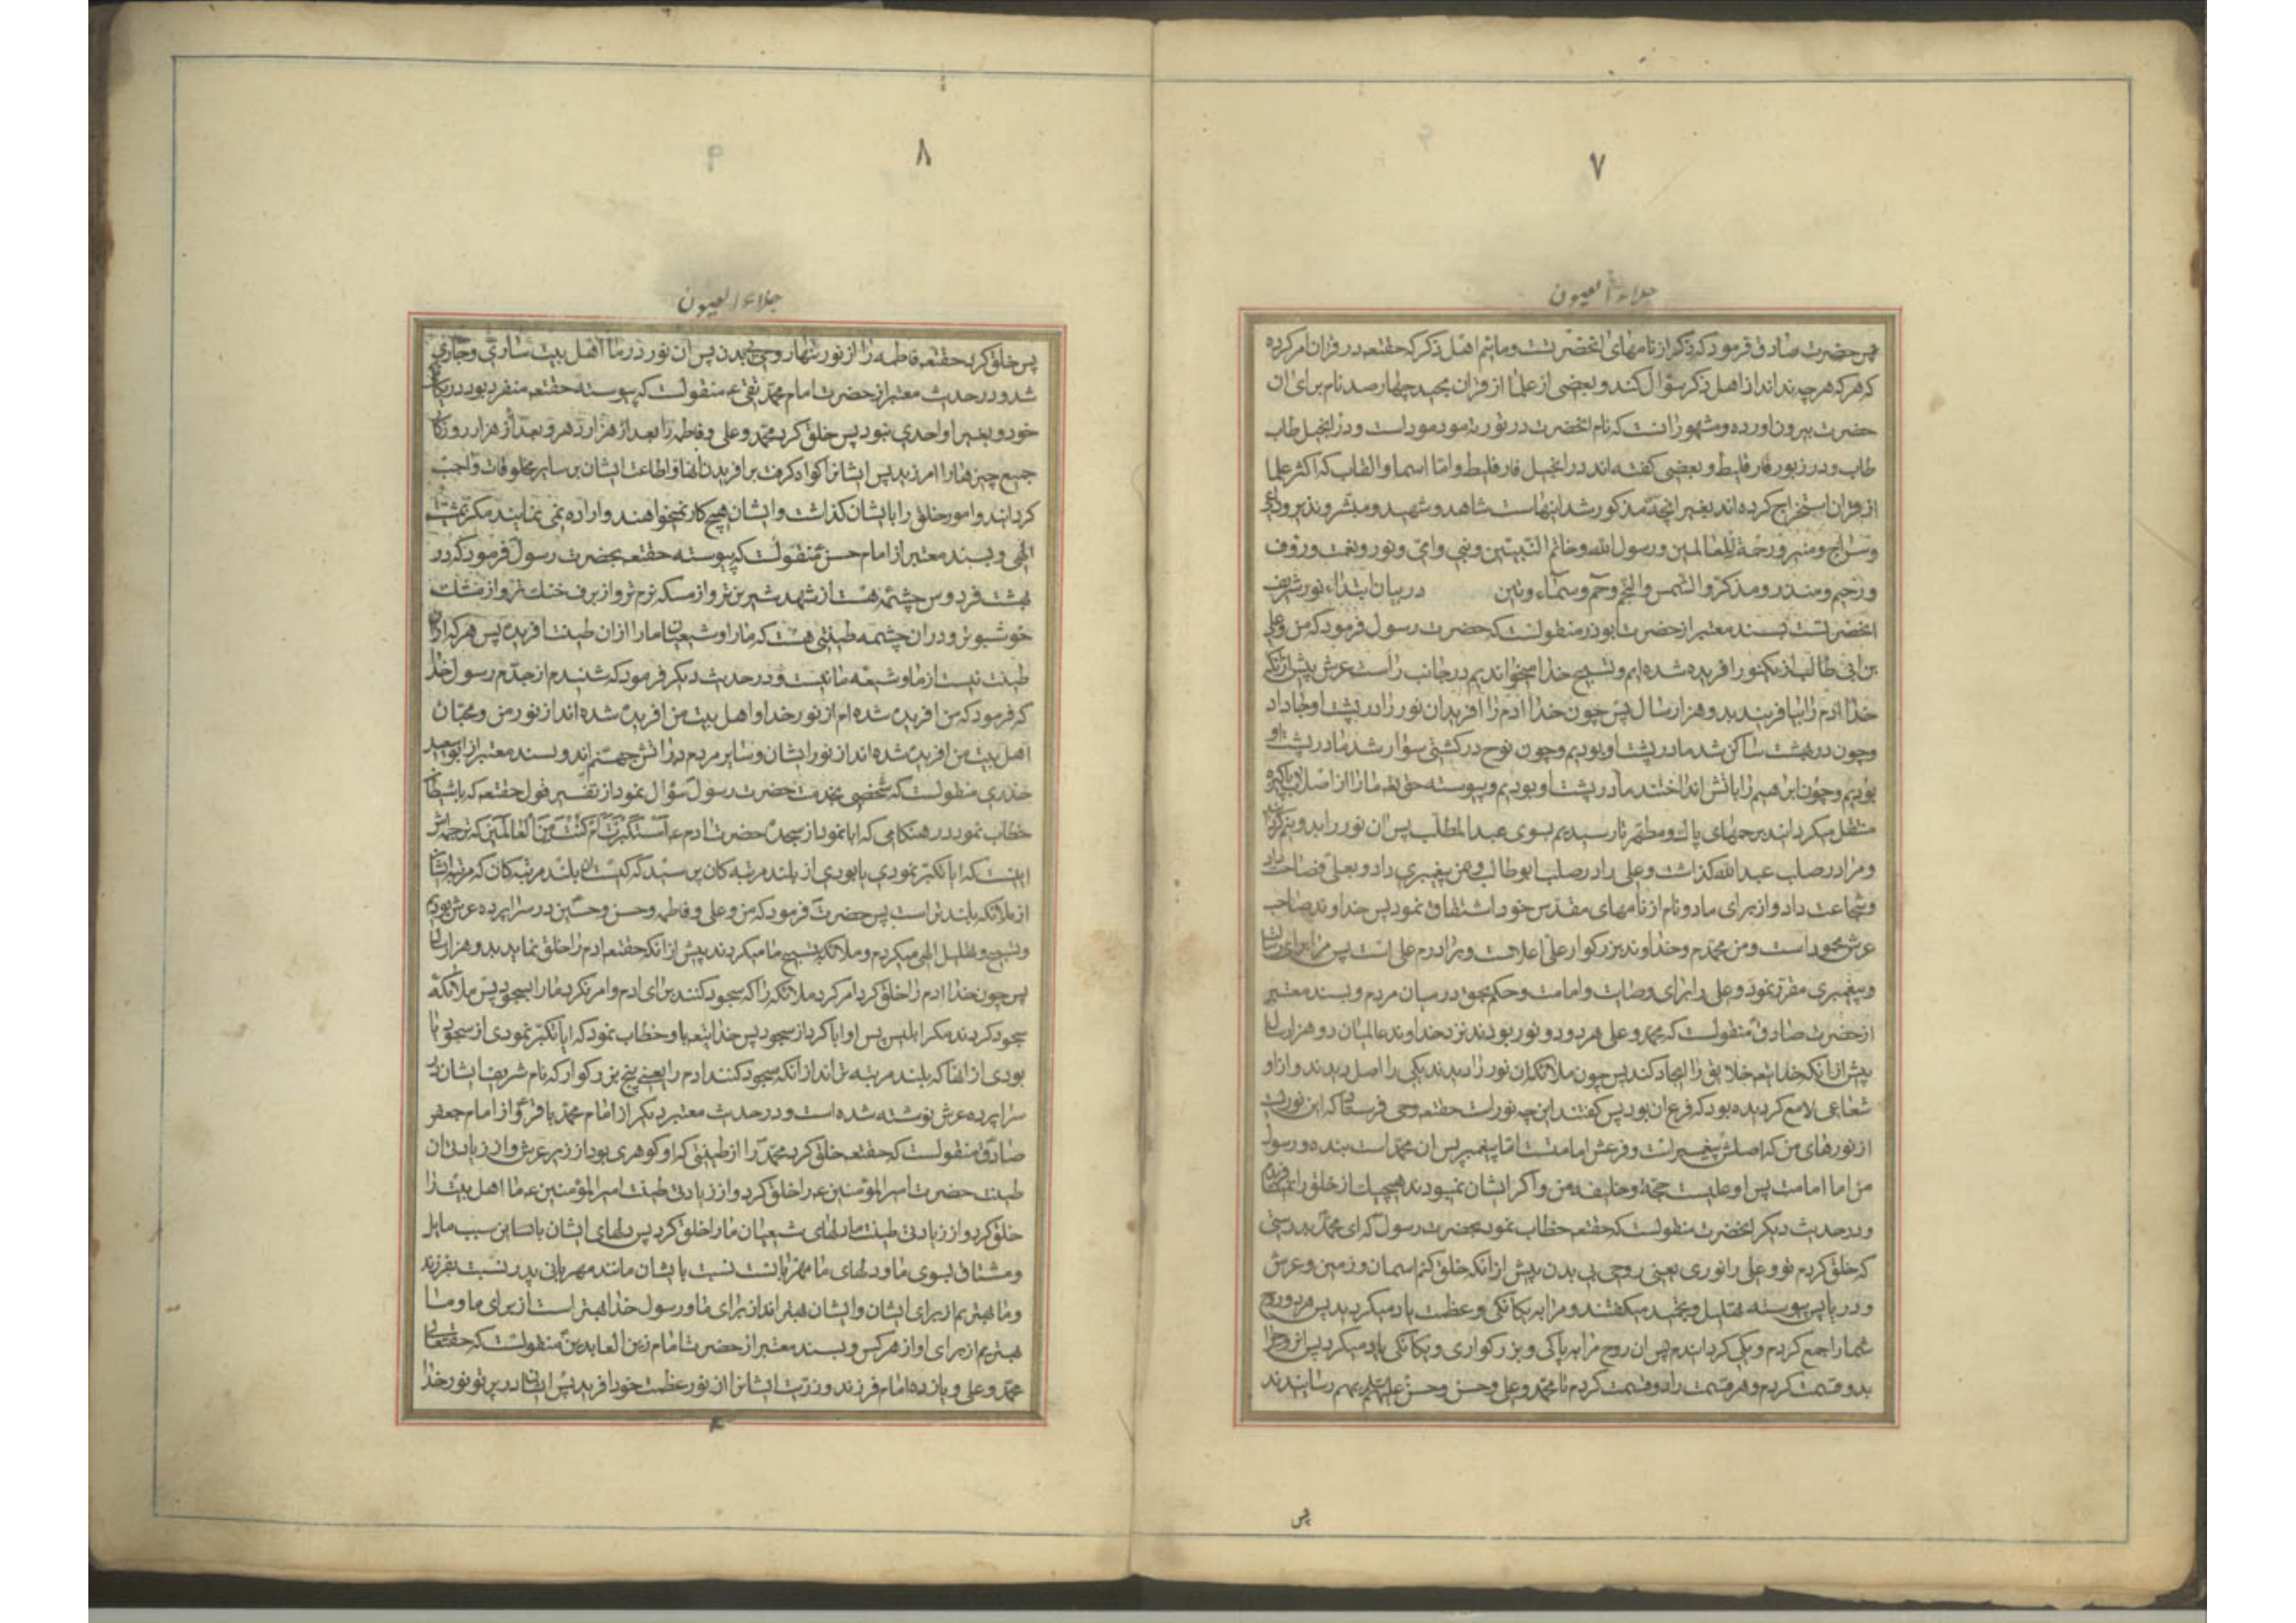 ۷
جلاء العیون
پس حضرت صادق فرمود که ذکر از نامهای انحضرتست و مائیم اهل ذکر که حقتعه در قران امر کرده
که هر که هر چه نداند از اهل ذکر سؤال کند و بعضی از علما از قران مجید چهار صد نام برای ان
حضرت بیرون اورده و مشهور انست که نام انحضرت در توریة مودمود است و در انجیل طاب
طاب و در زبور فارقلیط و بعضی گفته اند در انجیل فارقلیط و اما اسما و القاب که اکثر علما
از قران استخراج کرده اند بغیر انچه مذکور شد اینهاست شاهد و شهید و مبشر و نذیر و داعی
و سراج و منیر و رحمة للعالمین و رسول الله و خاتم النبیّین و نبی و امّی و نور و نعمت و رؤف
و رحیم و منذر و مذکّر و الشمس و النجم و حم و سماء و تین در بیان ابتداء نور شریف
انحضرتست بسند معتبر از حضرت ابوذر منقولست که حضرت رسول فرمود که من و علی
بن ابی طالب از یکنور افریده شده ایم و تسبیح خدا میخواندیم در جانب راست عرش پیش از انکه
خدا ادم را بیافریند بدو هزار سال پس چون خدا ادم را افرید ان نور را در پشت او جا داد
و چون در بهشت ساکن شد ما در پشت او بودیم و چون نوح در کشتی سوار شد ما در پشت او
بودیم و چون ابرهیم را باتش انداختند ما در پشت او بودیم و پیوسته حق تعه ما را از اصلاب پاکیزه
منتقل میکردانید برحمهای پاک و مطهر تا رسیدیم بسوی عبد المطلب پس ان نور را بدو نیم کرد
و مرا در صلب عبد الله گذاشت و علی را در صلب ابو طالب و بمن پیغمبری داد و بعلی فصاحت داد
و شجاعت داد و از برای ما دو نام از نامهای مقدس خود اشتقاق نمود پس خداوند صاحب
عرش محمود است و من محمدم و خداوند بزرکوار علی اعلاست و برادرم علی است پس مرا برای رسالت
و پیغمبری مقرر نمود و علی را برای وصایت و امامت و حکم بحق در میان مردم و بسند معتبر
از حضرت صادق منقولست که محمد و علی هر دو دو نور بودند نزد خداوند عالمیان دو هزار سال
پیش از انکه خدایتعه خلایق را ایجاد کند پس چون ملائکه ان نور را دیدند یکی را اصل دیدند و از او
شعاعی لامع کردیده بود که فرع ان بود پس کفتند این چه نور است حقتعه وحی فرستاد که این نوریست
از نورهای من که اصلش پیغمبریست و فرعش امامتست اما پیغمبر پس ان محمد است بنده و رسول
من اما امامت پس او علیست حجة و خلیفه من و اکر ایشان نمیبودند هیچیک از خلق را نمیافریدم
و در حدیث دیکر انحضرت منقولست که حقتعه خطاب نمود بحضرت رسول که ای محمد بدرستی
که خلق کردم تو و علی را نوری یعنی روحی بی بدن پیش از انکه خلق کنم اسمان و زمین و عرش
و دریا پس پیوسته تهلیل و تمجید میکفتند و مرا به یکانکی و عظمت یاد میکردید پس هر دو روح
شما را جمع کردم و یکی کردانیدم پس ان روح مرا به پاکی و بزرکواری و یکانکی یاد میکرد پس انرا
بدو قسمت کردم و هر قسمت را دو قسمت کردم تا محمد و علی و حسن و حسین بهم رسانیدند
پس
۸
جلاء العیون
پس خلق کرد حقتعه فاطمه را از نور تنها روحی بی بدن پس ان نور در ما اهل بیت ساری و جاری
شد و در حدیث معتبر از حضرت امام محمد تقی ع منقولست که پیوسته حقتعه منفرد بود در یکانکی
خود و بغیر او احدی نبود پس خلق کرد محمد و علی و فاطمه را بعد از هزار دهر و بعد از هزار روزکار
جمیع چیزها را امرزید پس ایشانرا کواه کرفت بر افریدن انها و اطاعت ایشان بر سایر مخلوقات واجب
کردانید و امور خلق را بایشان کذاشت و ایشان هیچ کار نمیخواهند و اراده نمی نمایند مکر بمشیت
الهی و بسند معتبر از امام حسن منقولست که پیوسته حقتعه بحضرت رسول فرمود که در
بهشت فردوس چشمه هست از شهد شیرین تر و از مسکه نرم تر و از برف خنک تر و از مشک
خوشبوتر و در ان چشمه طینتی هست که ما را و شیعیان ما را از ان طینت افریده پس هر که از ان
طینت نیست از ما و شیعه ما نیست و در حدیث دیکر فرمود که شنیدم از جدّم رسول خدا
که فرمود که من افریده شده ام از نور خدا و اهل بیت من افریده شده اند از نور من و محبّان
اهل بیت من افریده شده اند از نور ایشان و سایر مردم در اتش جهنم اند و بسند معتبر از ابو سعید
خدری منقولست که شخصی بخدمت حضرت رسول سؤال نمود از تفسیر قول حقتعه که با شیطان
خطاب نمود در هنکامی که ابا نمود از سجده حضرت ادم ع اَستَکبَرتَ اَم کُنتَ مِنَ العالَینَ که ترجمه اش
اینست که ایا تکبّر نمودی یا بودی از بلند مرتبه کان پرسید که کیستند بلند مرتبه کان که مرتبه ایشان
از ملائکه بلندتر است پس حضرت فرمود که من و علی و فاطمه و حسن و حسین در سراپرده عرش بودیم
و تسبیح و تهلیل الهی میکردیم و ملائکه بتسبیح ما میکردند پیش از انکه حقتعه ادم را خلق نماید بدو هزار سال
پس چون خدا ادم را خلق کرد امر کرد ملائکه را که سجود کنند برای ادم و امر نکرد ما را بسجود پس ملائکه
سجود کردند مکر ابلیس پس او ابا کرد از سجود پس خدایتعه باو خطاب نمود که ایا تکبّر نمودی از سجود یا
بودی از انها که بلند مرتبه تراند از انکه سجود کنند ادم را یعنی پنج بزرکوار که نام شریف ایشان در
سراپرده عرش نوشته شده است و در حدیث معتبر دیکر از امام محمد باقر و از امام جعفر
صادق منقولست که حقتعه خلق کرد محمّد را از طینتی که او کوهری بود از زیر عرش و از زیادتی ان
طینت حضرت امیر المؤمنین ع را خلق کرد و از زیادتی طینت امیر المؤمنین ع ما اهل بیت را
خلق کرد و از زیادتی طینت ما دلهای شیعیان ما را خلق کرد پس دلهای ایشان باین سبب مایل
و مشتاق بسوی ما و دلهای ما مهربانست نسبت بایشان مانند مهربانی پدر نسبت بفرزند
و ما بهتریم از برای ایشان و ایشان بهتراند برای ما و رسول خدا بهتر است از برای ما و ما
بهتریم از برای او از هر کس و بسند معتبر از حضرت امام زین العابدین منقولست که حقتعالی
محمّد و علی و یازده امام فرزند و ذریت ایشانرا از نور عظمت خود افرید پس ایشان در پرتو نور خدا